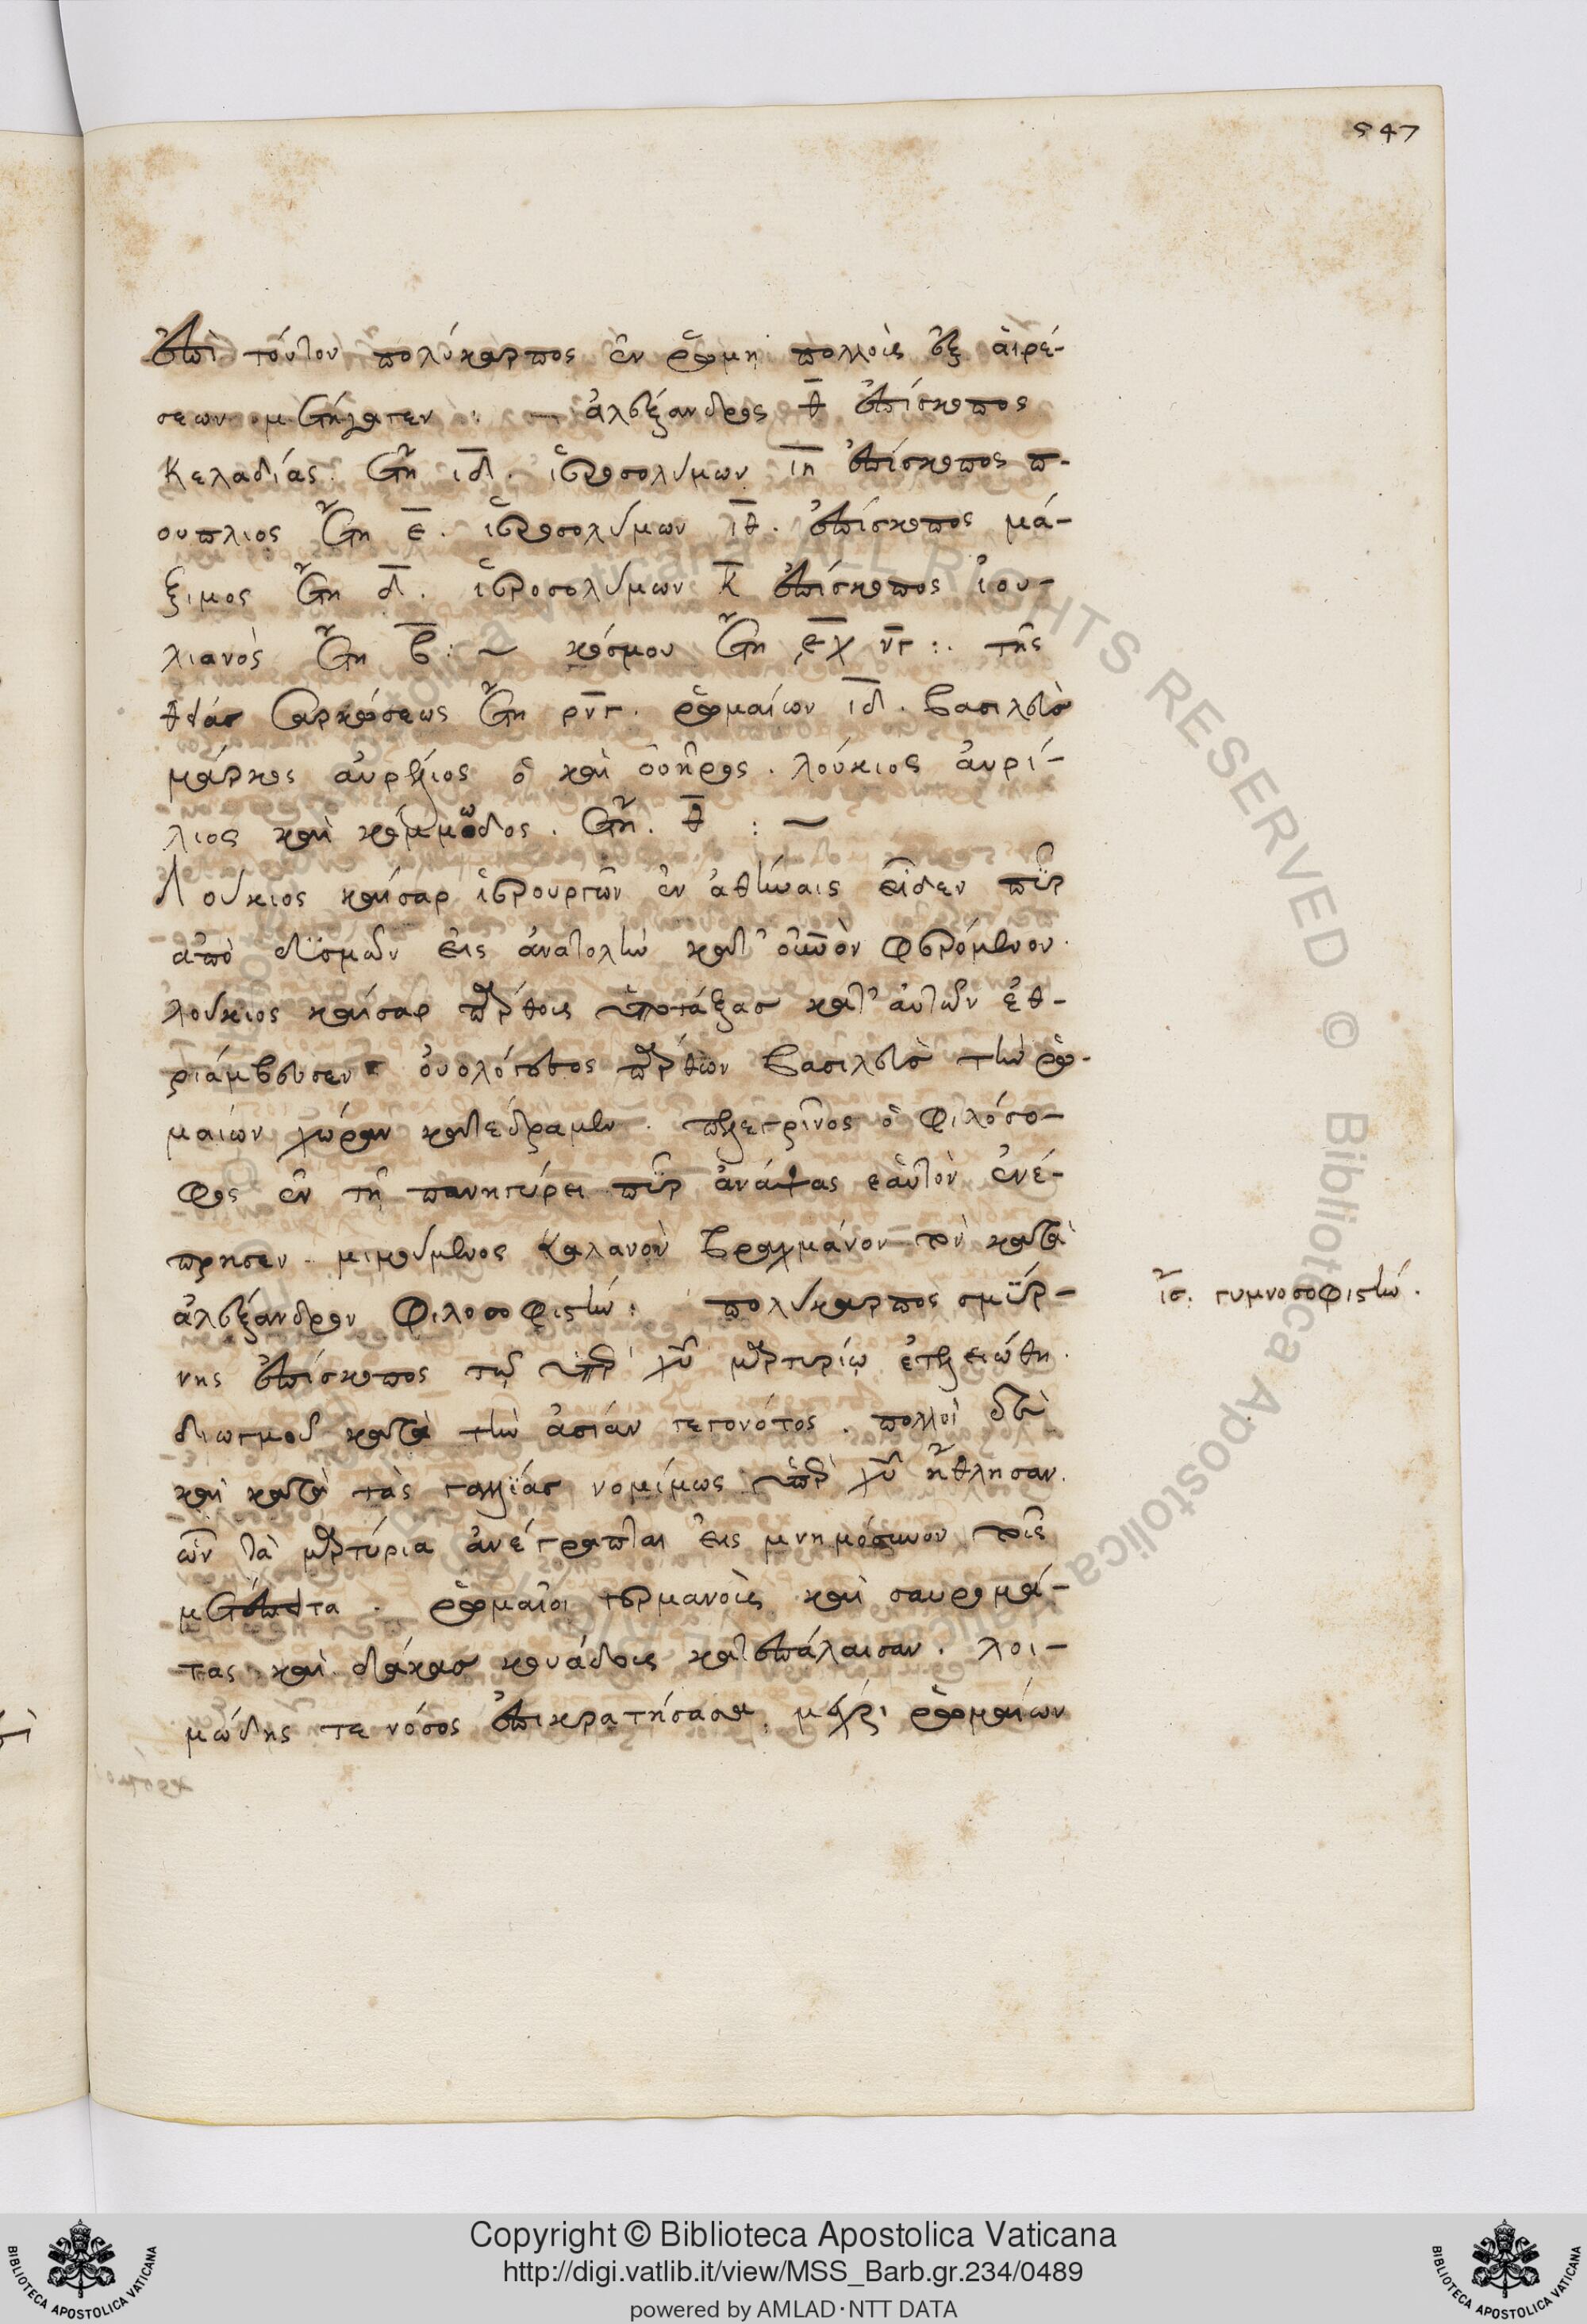 547
ἐπὶ τούτου πολύκαρπος ἐν ῥώμῃ πολλοὺς ἐξ αἱρέ-
σεων μετήγαγεν : — ἀλεξάνδρ θ̅ ἐπίσκοπος
κελαδίας ἔτη ι̅δ̅. ἱεροσολύμων ι̅η̅ ἐπίσκοπος π-
ουπλιος ἔτη ε̅. ἱεροσολύμων ι̅θ̅. ἐπίσκοπος μά-
ξιμος ἔτη δ̅. ἱεροσολύμων κ̅ ἐπίσκοπος ἰου-
λιανὸς ἔτη β̅ : ~ κόσμου ἔτη ͵ε̅χ̅ν̅γ̅ :. τῆς
θείας σαρκώσεως ἔτη ρν̅γ. ῥωμαίων ι̅δ̅. βασιλεὺς
μάρκος αὐρήλιος ὁ καὶ οὐῆρος. λούκιος αὐρί-
λιος καὶ κόμμωδος. ἔτη. θ̅ : ~
Λούκιος καίσαρ ἱερουργῶν ἐν ἀθήναις εἶδεν πῦρ
ἀπὸ δϋσμῶν εἰς ἀνατολὴν κατ' οὐνὸν φερόμενον.
λούκιος καίσαρ πάρθους ὑποτάξας κατ' αὐτῶν ἐθ-
ριάμβευσεν. οὐολόγεσος πάρθων βασιλεὺς τὴν ῥω-
μαίων χώραν κατέδραμεν. πελεγρῖνος ὁ φιλόσο-
φος ἐν τῇ πανηγύρει πῦρ ἀνάψας ἑαὐτὸν ἐνέ-
πρησεν. μιμούμενος καλανὸν βραχμάνον τὸν κατὰ
ἀλεξάνδρον φιλοσοφιστήν : πολύκαρπος σμϋρ-
νης ἐπίσκοπος τῷ ὑπὲρ χῦ μαρτυρίῳ ἐτελειώθη.
διωγμοῦ κατὰ τὴν ἀσίαν γεγονότος. πολλοὶ δὲ
καὶ κατὰ τὰς γαλλϊάς νομίμως ὑπὲρ χῦ ἤθλησαν.
ὧν τὰ μαρτύρια ἀνέγραπται εἰς μνημόσυνον τοῖς
μετέπειτα. ῥωμαῖοι γερμανοὺς καὶ σαυρομά-
τας καὶ δάκας κουάδους κατεπάλαισαν. λοι-
μώδης τε νόσος ἐπικρατήσασα, μέχρι ῥωμαίων
ἴσ. γυμνοσοφιστήν.
Copyright © Biblioteca Apostolica Vaticana
http://digi.vatlib.it/view/MSS_Barb.gr.234/0489
powered by AMLAD·NTT DATA